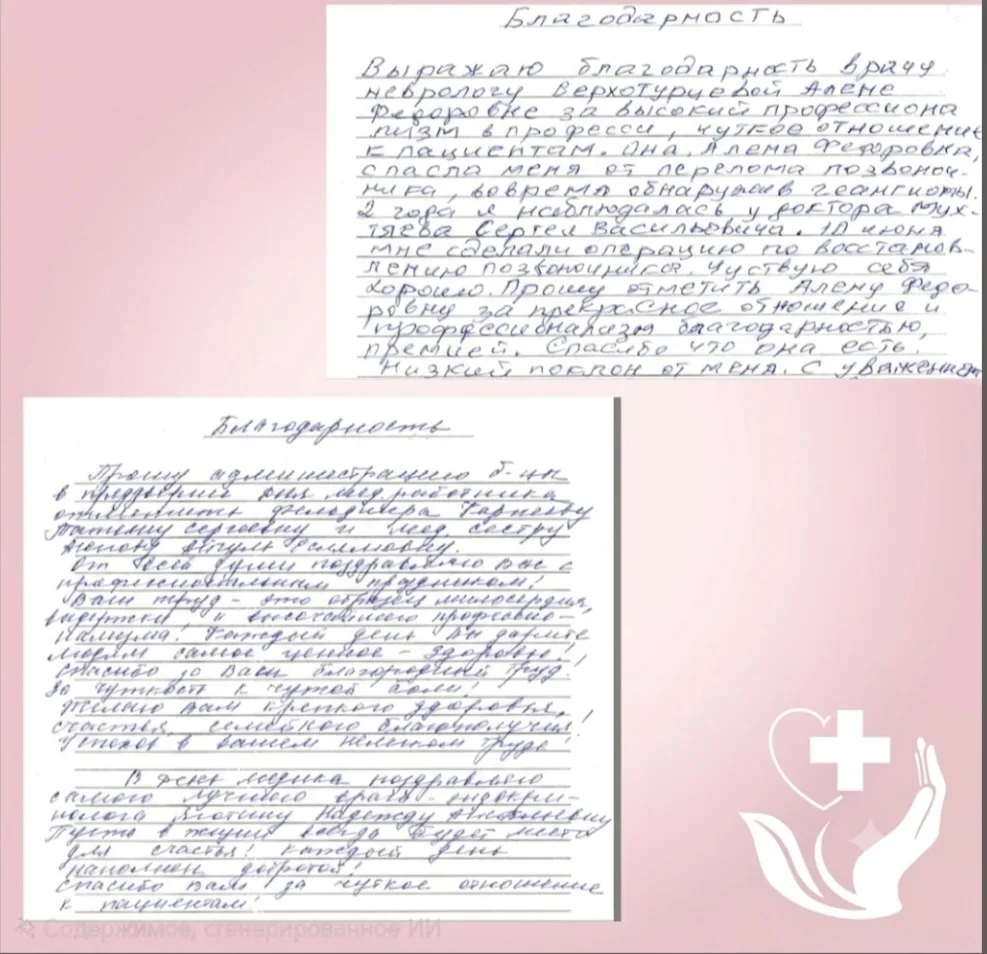 Благодарность
Выражаю благодарность врачу
неврологу Верхотурцевой Алене
Федоровне за высокий профессиона
лизм в професси, чуткое отношение
к пациентам. Она, Алена Федоровна,
спасла меня от перелома позвоноч-
ника, вовремя обнаружив геангиомы.
2 года я наблюдалась у доктора Мух-
тяева Сергея Васильовича. 10 июня
мне сделали операцию по восстанов-
лению позвоночника. Чуствую себя
хорошо. Прошу отметить Алену Федо-
ровну за прекрасное отношение и
профессионализм благодарностью,
премией. Спасибо что она есть.
Низкий поклон от меня. С уважением
Благодарность
Прошу администрацию б-цы
в преддверии дня мед. работника
отметить
Татьяну Сергеевну и мед. сестру
От всей души поздравляю Вас с
профессиональным праздником!
Ваш труд - это образец милосердия,
выдержки и высочайшего професси-
нализма! Каждый день Вы дарите
людям самое ценное - здоровье!
Спасибо за Ваш благородный труд!
За чуткость к чужой боли!
Желаю Вам крепкого здоровья,
счастья, семейного благополучия!
Успехов в вашем нелегком труде
В день медика поздравляю
самого лучшего врача - эндокри-
нолога Надежду
Пусть в жизни всегда будет место
для счастья! Каждый день
наполнен добротой!
Спасибо Вам за чуткое отношение
к пациентам!
Содержимое, сгенерированное ИИ